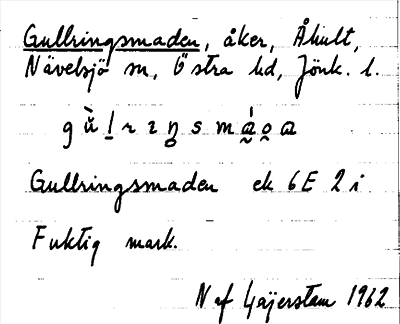 Gullringsmaden, åker, Åhult,
Nävelsjö sn, Östra hd, Jönk. l.
Gullringsmaden ek 6E 2 i
Fuktig mark.
N af Gajerstam 1962